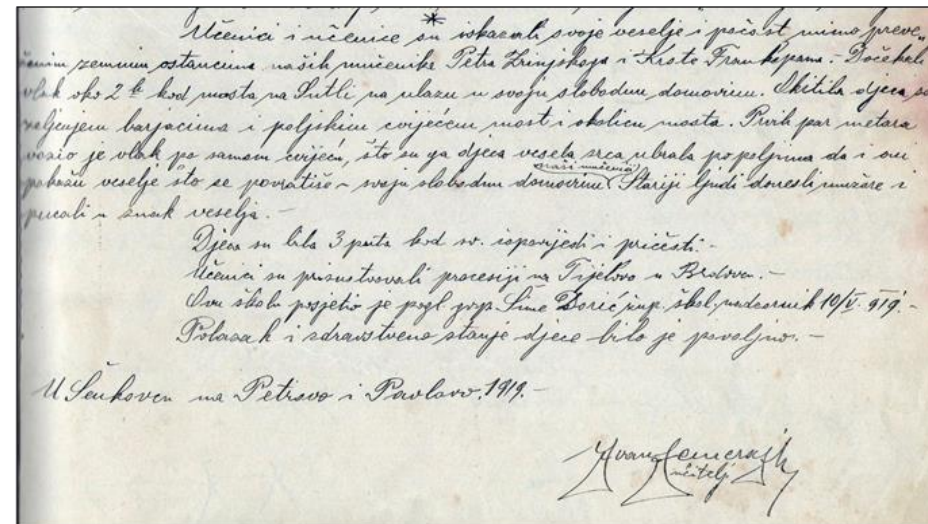 *
Učenici i učenice su iskazali svoje veselje i počast mimo preve-
ženim zemnim ostancima naših mučenika Petra Zrinjskoga i Krste Frankopana. Dočekali
vlak oko 2 h kod mosta na Sutli na ulazu u svoju slobodnu domovinu. Okitila djeca sa
zeljenjem barjacima i poljskim cvijećem most i okolicu mosta. Prvih par metara
vozio je vlak po samom cvijeću, što su ga djeca vesela srca ubrala po poljima da i oni
pokažu veselje što se povratiše u svoju slobodnu domovinu (naši mučenici). Stariji ljudi donesli mužare i
pucali u znak veselja. -
Djeca su bila 3 puta kod sv. ispovijedi i pričesti. -
Učenici su prisustvovali procesiji na Tijelovo u Brdovcu. -
Ovu školu posjetio je pogl. gosp. Šime Dorić žup. škol. nadzornik 10/V. 919. -
Polazak i zdravstveno stanje djece bilo je povoljno. -
U Šenkovcu na Petrovo i Pavlovo. 1919. -
Ivan
učitelj